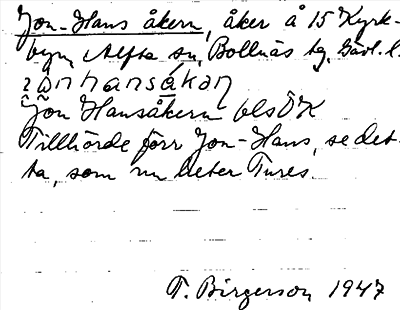 Jon-Hans åkern, åker å 15 Kyrk-
byn, Alfta sn, Bollnäs tg. Gävl. l.
Jon Hansåkern blsÖK
Tillhörde förr Jon-Hans, se det-
ta, som nu heter Tures.
T. Birgerson 1947